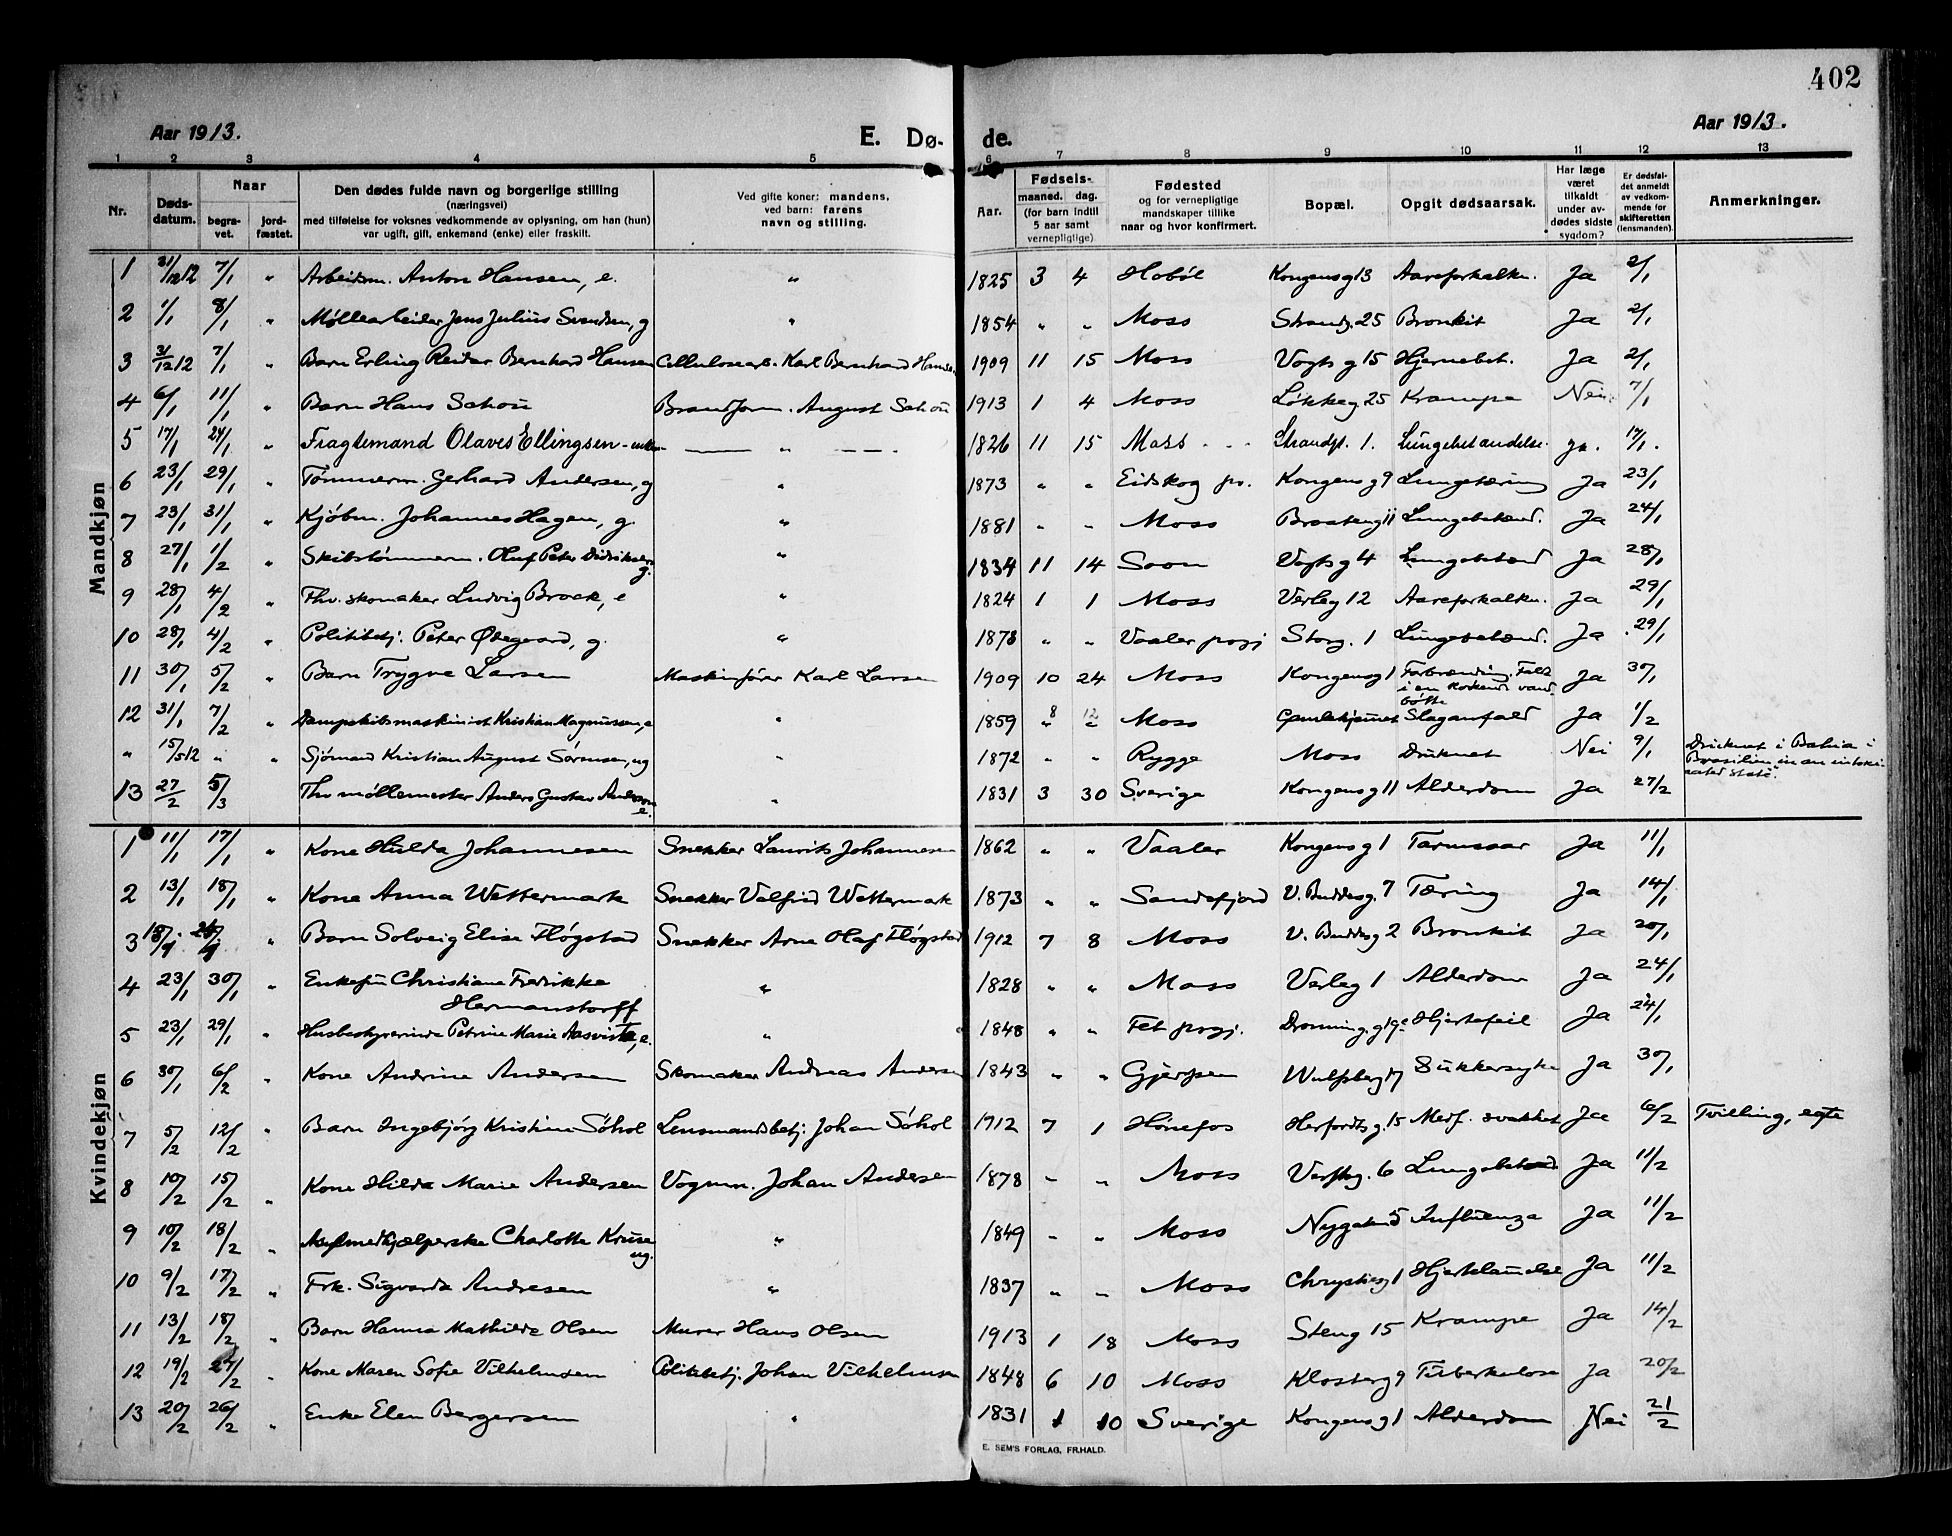 402
Aar 1913. E. Dø- de. Aar 1913.
1 2 3 4 5 6 7 8 9 10 11 12 13
Nr.
Døds-
datum.
Naar
begra-
vet.
jord-
fæstet.
Den dødes fulde navn og borgerlige stilling
(næringsvei)
med tilføielse for voksnes vedkommende av oplysning, om han (hun)
var ugift, gift, enkemand (enke) eller fraskilt.
Ved gifte koner: mandens,
ved barn: farens
navn og stilling.
Fødsels-
Aar.
maaned.
dag.
(for barn indtil
5 aar samt
vernepligtige)
Fødested
og for vernepligtige
mandskaper tillike
naar og hvor konfirmert.
Bopæl.
Opgit dødsaarsak.
Har læge
været
tilkaldt
under av-
dødes sidste
sygdom?
Er dødsfal-
det anmeldt
av vedkom-
mende for
skifteretten
(lensmanden).
Anmerkninger.
Mandkjøn
1 31/12 12 7/1 " Arbeidsm. Anton Hansen, e. " 1825 3 4 Hobøl Kongensg 13 Aareforkalkn. Ja 2/1
2 1/1 8/1 " Møllearbeider Jens Julius Svendsen, g " 1854 " " Moss Strandg. 25 Bronkit Ja 2/1
3 31/12 12 7/1 " Barn Erling Reidar Bernhard Hansen Cellulosearb. Karl Bernhard Hansen 1909 11 15 Moss Vogtsg 15 Hjernebet. Ja 2/1
4 6/1 11/1 " Barn Hans Schou Brandform. August Schou 1913 1 4 Moss Løkkeg 25 Krampe Nei 7/1
5 17/1 24/1 " Fragtemand Olaves Ellingsen - " 1826 11 15 Moss Strandg. 1. Lungebetændelse. ja. 17/1.
6 23/1 29/1 " Tømmerm. Gerhard Andersen, g " 1873 " " Eidskog pr. Kongensg 9 Lungetæring Ja 23/1
7 23/1 31/1 " Kjøbm. Johannes Hagen, g. " 1881 " " Moss 11 Lungebetænd. Ja 24/1
8 27/1 1/2 " Skibstømmerm. Oluf Peter Didriksen g. " 1834 11 14 Soon Vogtsg 4 Lungebetænd Ja 28/1
9 28/1 4/2 " Fhv. skomaker Ludvig Brock, e " 1824 1 1 Moss Verleg 12 Aareforkalkn. Ja 29/1
10 28/1 4/2 " Politibetj. Peter Ødegaard, g. " 1878 " " Vaaler prgj Storg. 1 Lungebetænd. Ja 29/1
11 30/1 5/2 " Barn Trygve Larsen Maskinfører Karl Larsen 1909 10 24 Moss Kongensg 1 Forbrænding. Faldt
i en kokende vand
bøtte Ja 30/1
12 31/1 7/2 " Dampskibsmaskinist Kristian Magnussen, e " 1859 8 12 Moss Gamlehjemmet Slaganfald Ja 1/2
" 15/5 12 " " Sjømand Kristian August Sørensen, ug 1872 " " Rygge Moss Druknet Nei 9/1 Druknet i Bahia i
Brasilien "in an intoxi-
cated state".
13 27/2 5/3 Fhv møllemester Anders Gustav Anderson e. " 1831 3 30 Sverige Kongensg 11 Alderdom Ja 27/2
Kvindekjøn
1 11/1 17/1 " Kone Hulda Johannesen Snekker Laurits Johannesen 1862 " " Vaaler Kongensg 1 Tarmsaar Ja 11/1
2 13/1 18/1 " Kone Anna Wettermark Snekker Valfrid Wettermark 1873 " " Sandefjord V. Buddesg. 7 Tæring Ja 14/1
3 Barn Solveig Elise Fløgstad Snekker Arne Olaf Fløgstad 1912 7 8 Moss V. Buddesg 2 Bronkit Ja 20/1
4 23/1 30/1 " Enkefru Christiane Fredrikke
Hermanstorff " 1828 " " Moss Verleg 1 Alderdom Ja 24/1
5 23/1 29/1 " Husbestyrerinde Petrine Marie, e. " 1848 " " Fet prgj. Dronning.g 19 Hjertefeil Ja 24/1
6 30/1 6/2 " Kone Andrine Andersen Skomaker Andreas Andersen 1843 " " Gjerpen Wulfsbergg 17 Sukkersyke Ja 30/1
7 5/2 12/2 " Barn Ingebjørg Kristine Söhol Lensmandsbetj. Johan Söhol 1912 7 1 Hönefos Herfordtsg. 15 Medf. svakhet Ja 6/2 Tvilling, egte
8 10/2 15/2 " Kone Hilda Marie Andersen Vognm. Johan Andersen 1878 " " Moss 6 Lungebetænd Ja 11/2
9 10/2 18/2 " Charlotte Kruse ug. " 1849 " " Moss 5 Influenza Ja 11/2
10 9/2 17/2 " Frk. Sigvarda Andresen " 1837 " " Moss Chrystiesg 1 Hjertelammelse Ja 11/2
11 13/2 18/2 " Barn Hanna Mathilda Olsen Murer Hans Olsen 1913 1 18 Moss Steng 15 Krampe Ja 14/2
12 19/2 27/2 " Kone Maren Sofie Vilhelmsen Politibetj. Johan Vilhelmsen 1848 6 10 Moss Klosterg 9 Tuberkulose Ja 20/2
13 20/2 26/2 " Enke Elen Bergersen " 1831 1 10 Sverige Kongensg 1 Alderdom Nei 21/2
E. SEM'S FORLAG, FR.HALD.